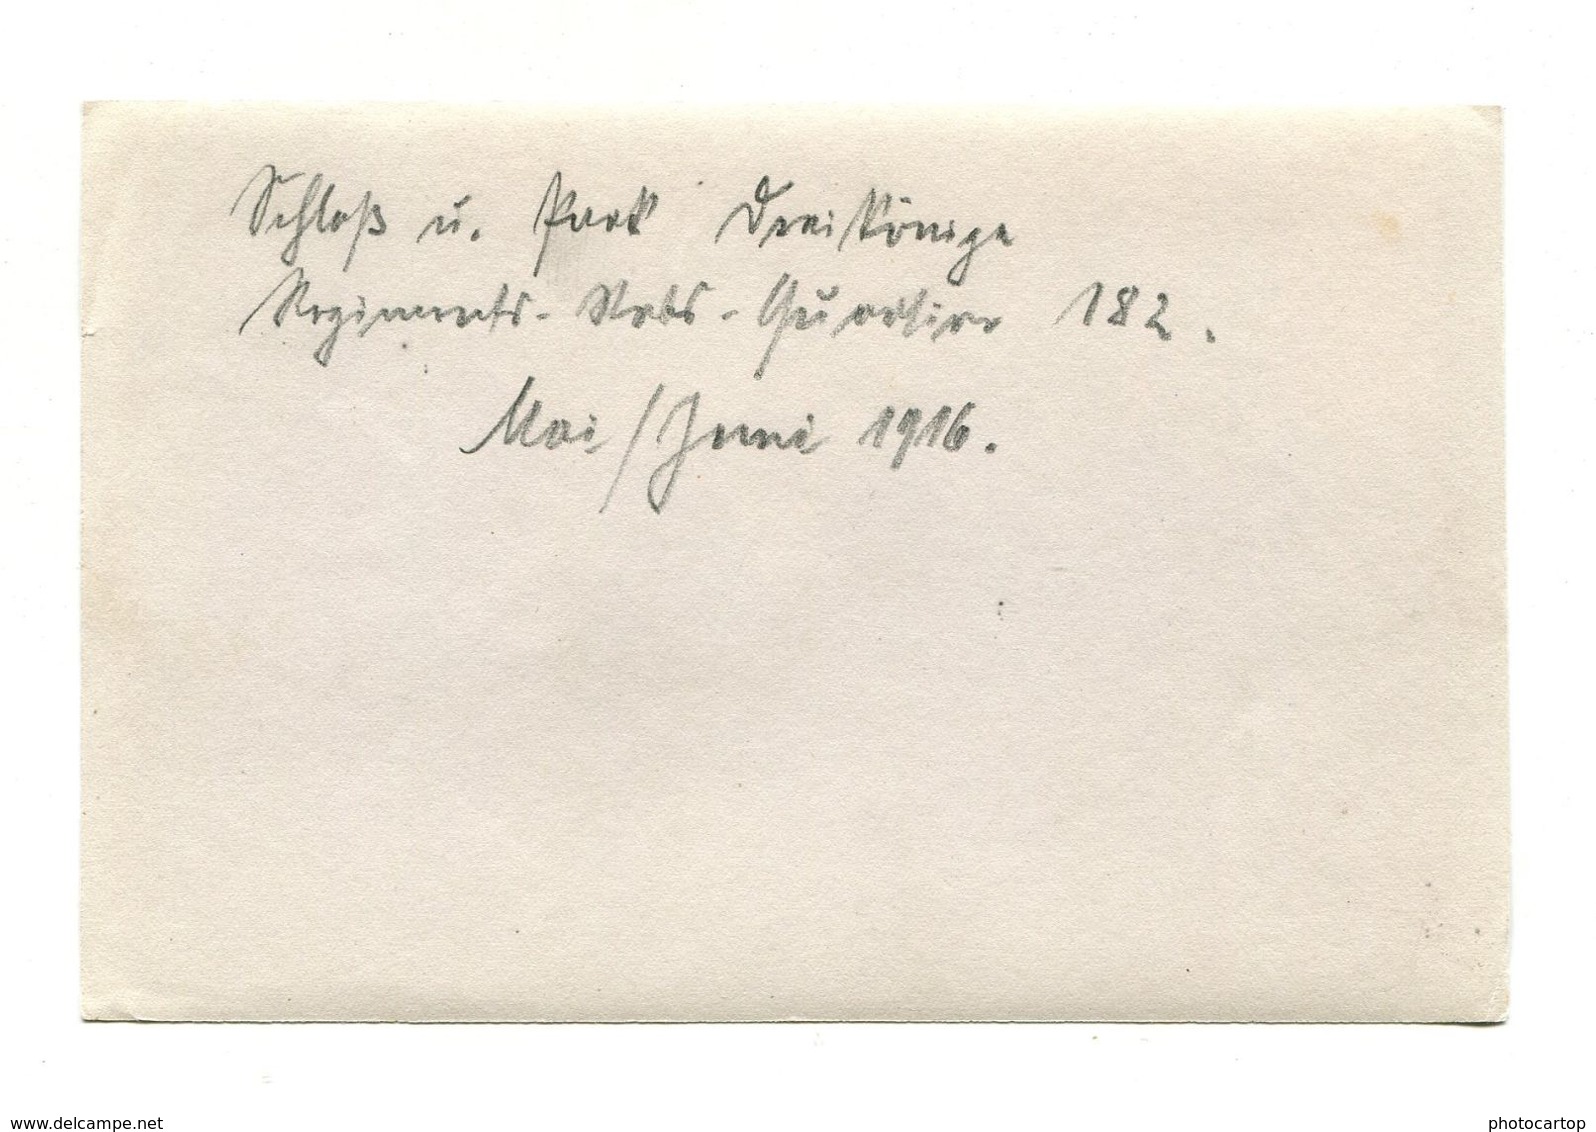 Schloß u. Park Dreikönige
Regiments-Stabs-Quartier 182.
Mai/Juni 1916.
www.delcampe.net
photocartop